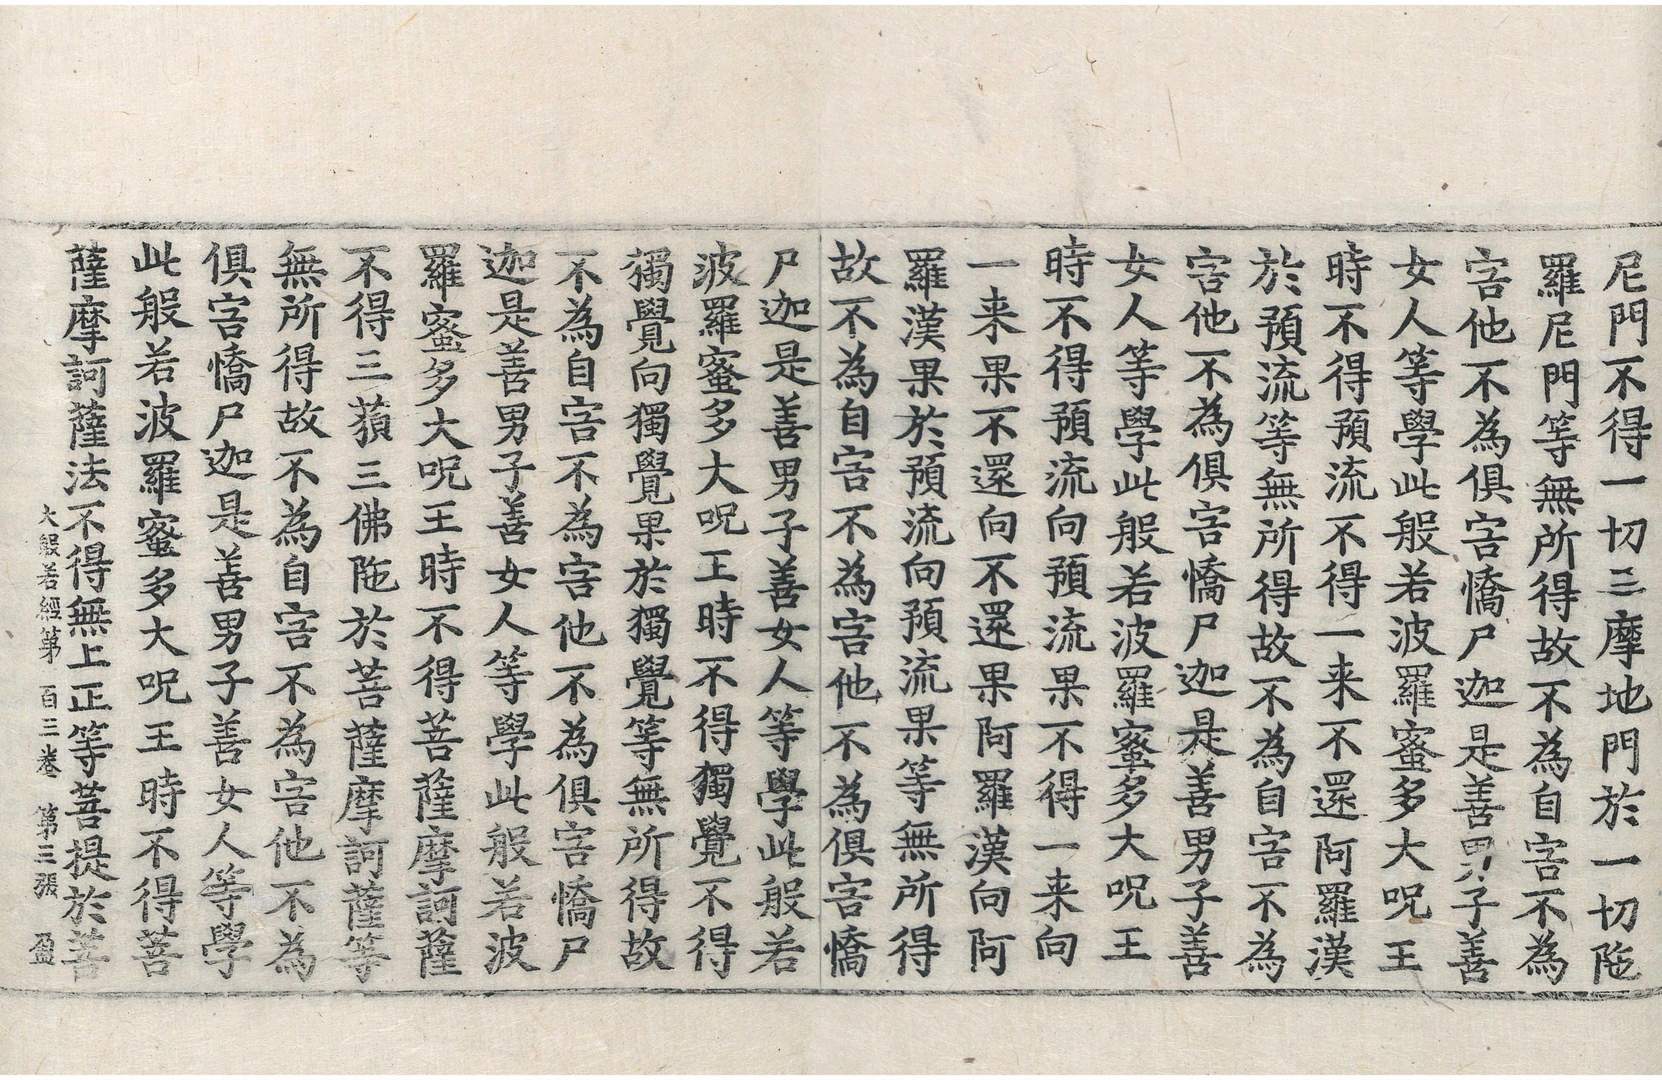 尼門不得一切三摩地門於一切陁
羅尼門等無所得故不為自害不為
害他不為俱害憍尸迦是善男子善
女人等學此般若波羅蜜多大呪王
時不得預流不得一来不還阿羅漢
於預流等無所得故不為自害不為
害他不為俱害憍尸迦是善男子善
女人等學此般若波羅蜜多大呪王
時不得預流向預流果不得一来向
一来果不還向不還果阿羅漢向阿
羅漢果於預流向預流果等無所得
故不為自害不為害他不為俱害憍
尸迦是善男子善女人等學此般若
波羅蜜多大呪王時不得獨覺不得
獨覺向獨覺果於獨覺等無所得故
不為自害不為害他不為俱害憍尸
迦是善男子善女人等學此般若波
羅蜜多大呪王時不得菩薩摩訶薩
不得三藐三佛陁於菩薩摩訶薩等
無所得故不為自害不為害他不為
俱害憍尸迦是善男子善女人等學
此般若波羅蜜多大呪王時不得菩
薩摩訶薩法不得無上正等菩提於菩
大般若經第一百三卷 第三張 盈